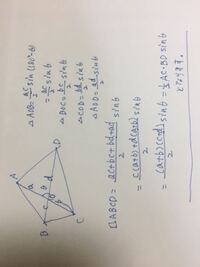 A
B
C
D
a
b
c
d
θ
△AOB = ac/2 sin(180°-θ)
= ac/2 sinθ
△BOC = bc/2 sinθ
△COD = bd/2 sinθ
△AOD = ad/2 sinθ
□ABCD = (ac+bc+bd+ad)/2 sinθ
= (c(a+b)+d(a+b))/2 sinθ
= (a+b)(c+d)/2 sinθ = 1/2 AC・BD sinθ
となります。